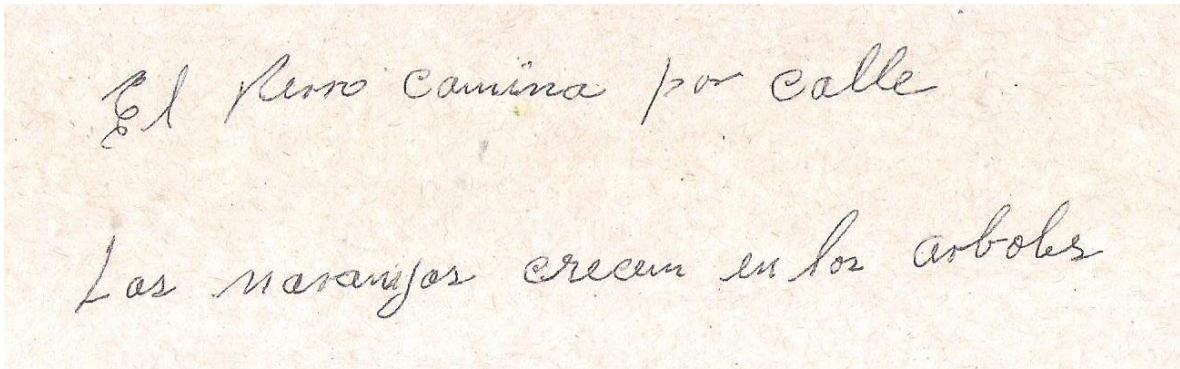 El Perro camina por calle
Las naranjas crecen en los arboles